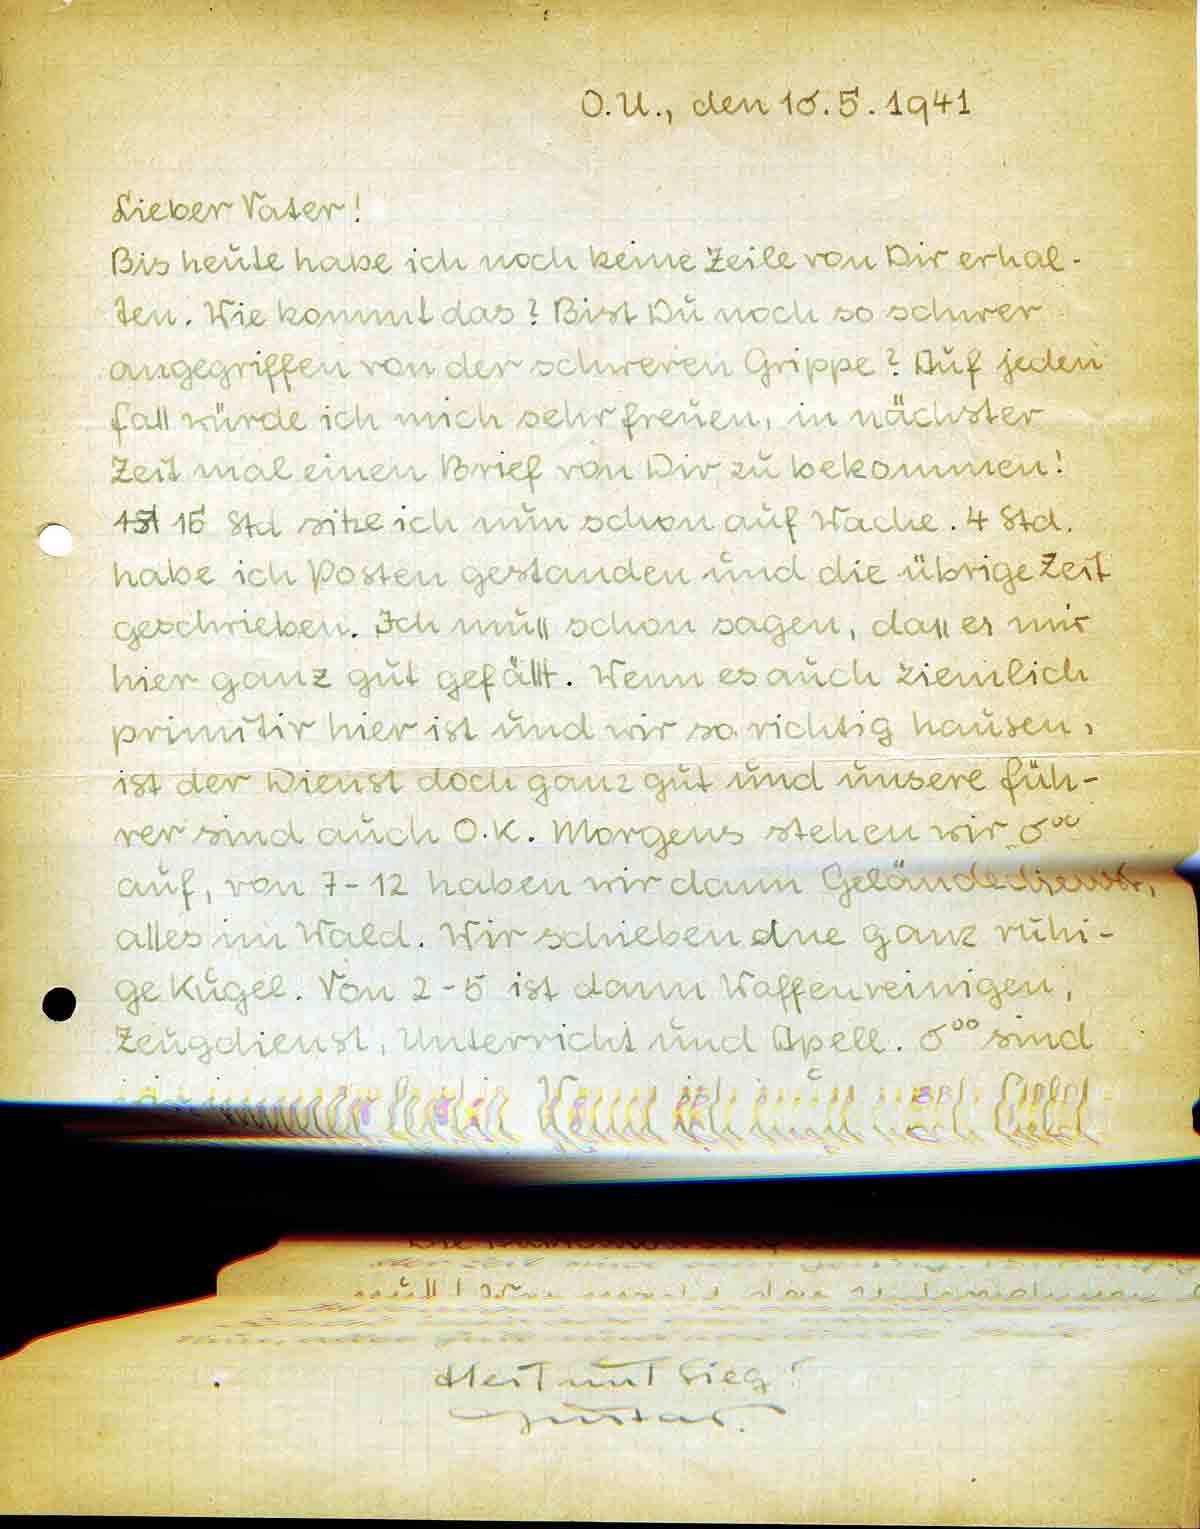 O.U., den 16.5.1941
Lieber Vater!
Bis heute habe ich noch keine Zeile von Dir erhal-
ten. Wie kommt das? Bist Du noch so schwer
angegriffen von der schweren Grippe? Auf jeden
fall würde ich mich sehr freuen, in nächster
Zeit mal einen Brief von Dir zu bekommen!
15 Std sitze ich nun schon auf Wache. 4 Std.
habe ich Posten gestanden und die übrige Zeit
geschrieben. Ich muß schon sagen, daß es mir
hier ganz gut gefällt. Wenn es auch ziemlich
primitiv hier ist und wir so richtig hausen,
ist der Dienst doch ganz gut und unsere Füh-
rer sind auch O.K. Morgens stehen wir 6⁰⁰
auf, von 7-12 haben wir dann Geländedienst,
alles im Wald. Wir schieben eine ganz ruhi-
ge Kugel. Von 2-5 ist dann Waffenreinigen,
Zeugdienst, Unterricht und Apell. 6⁰⁰ sind
Wenn ich noch Geld
Heil und Sieg!
Gustav.